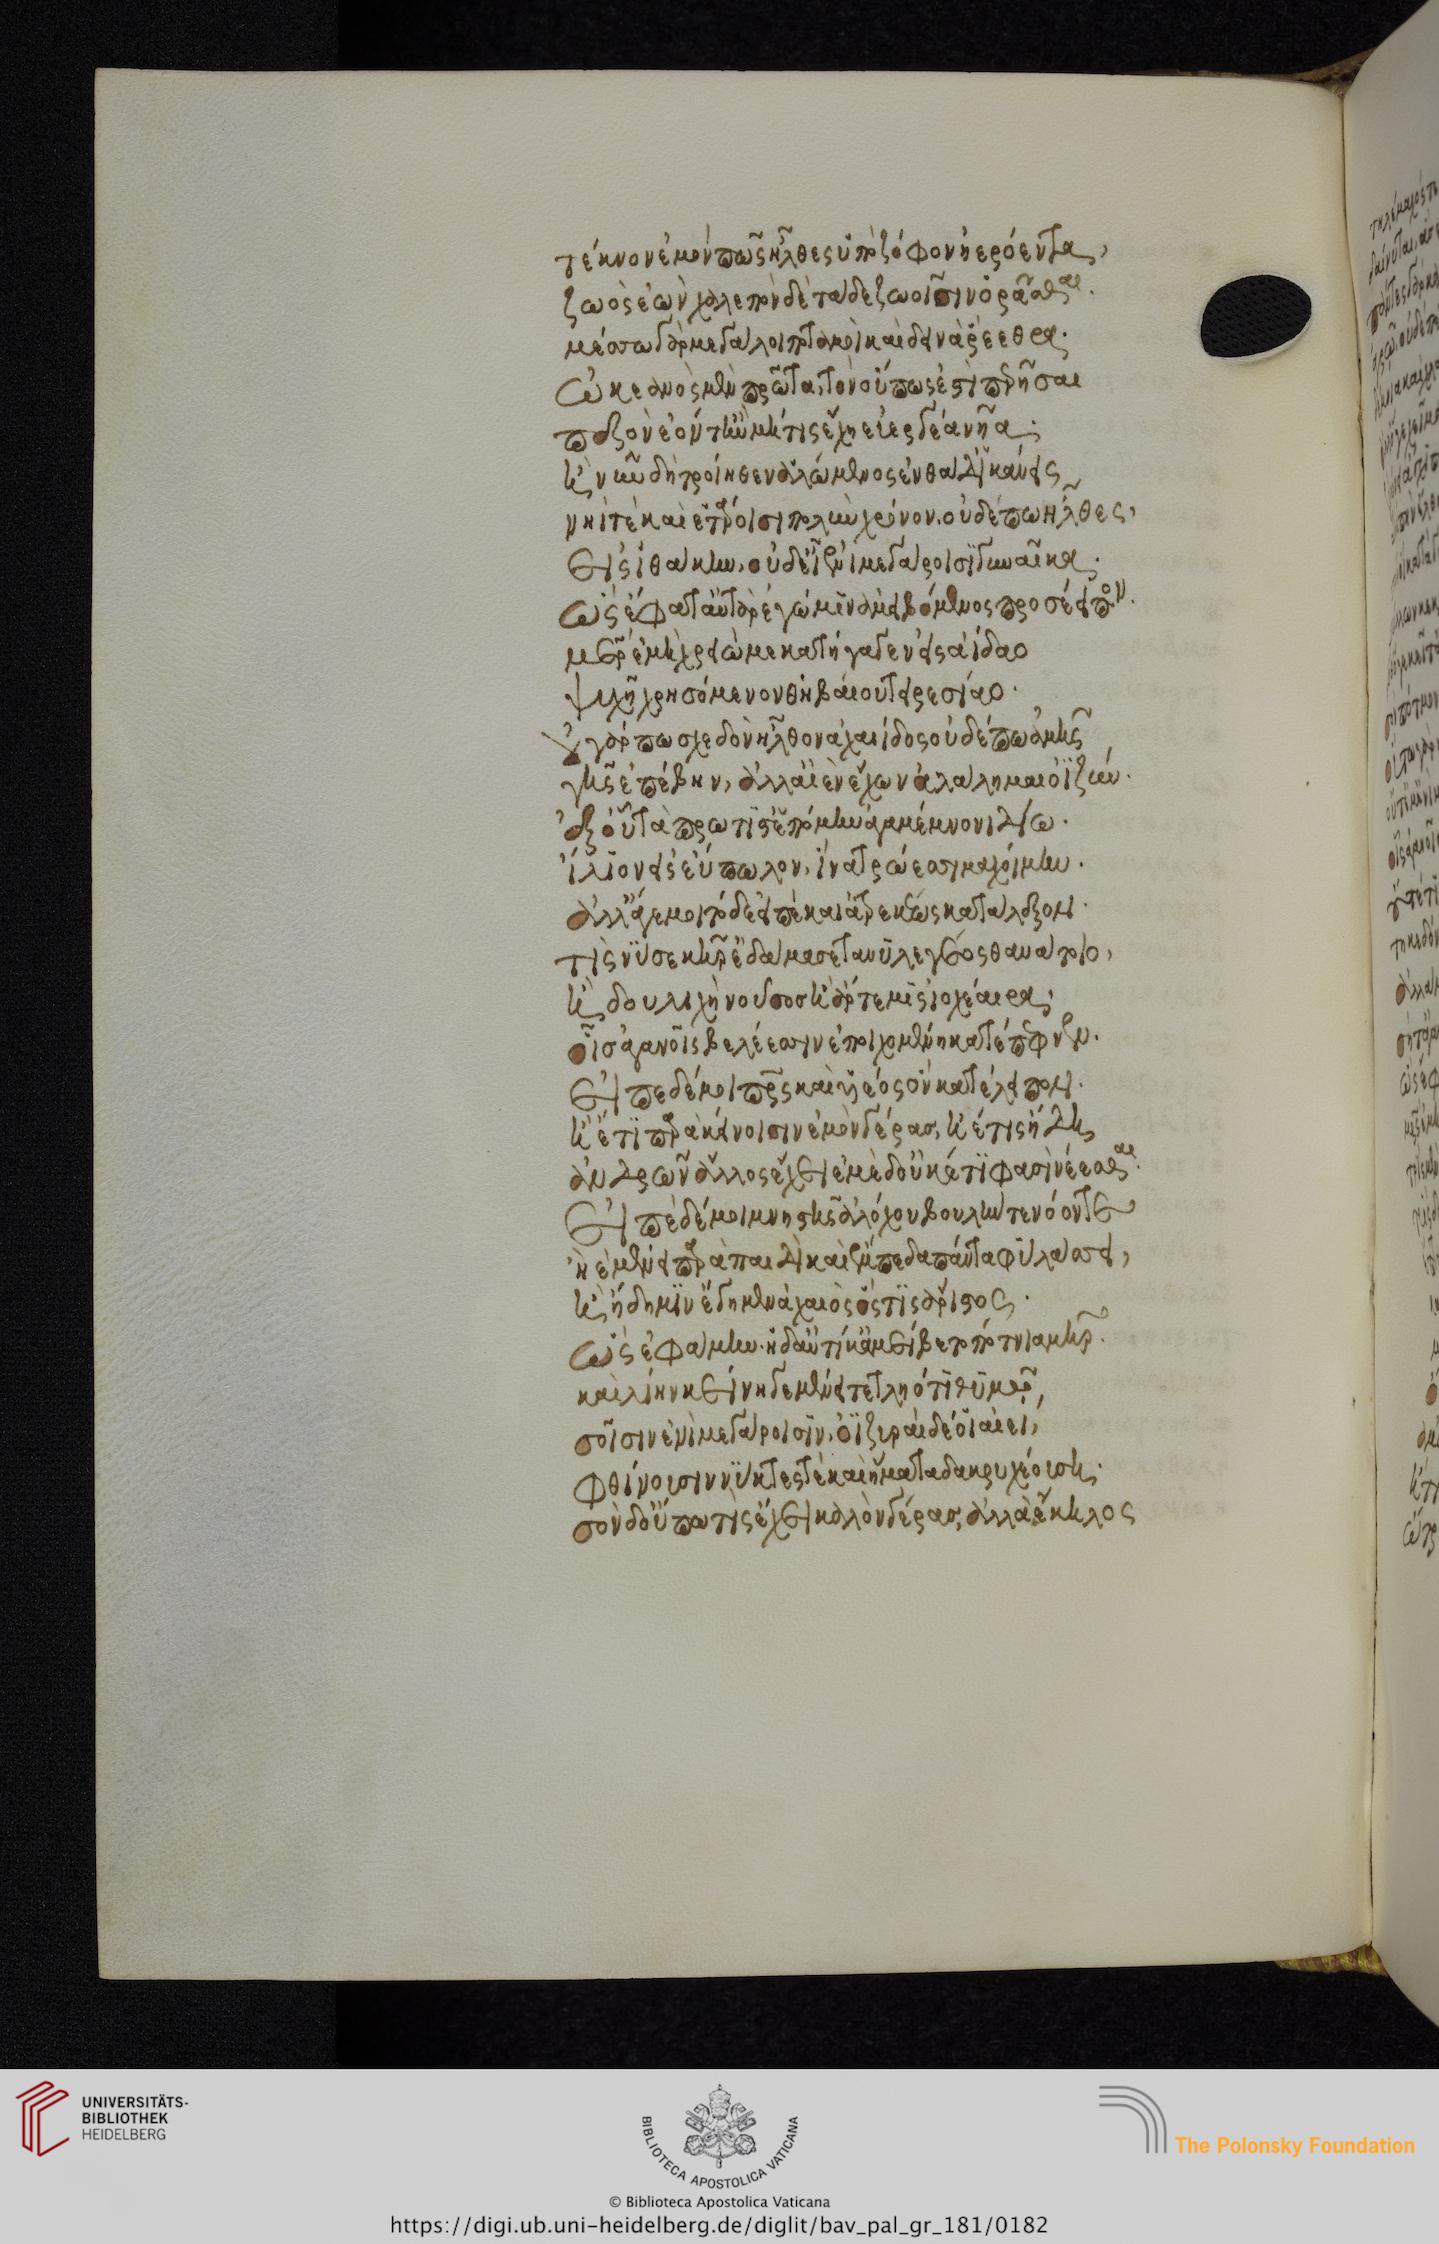 τέκνον ἐμὸν πῶς ἦλθες ὑπὸ ζόφον ἠερόεντα,
ζωὸς ἐὼν χαλεπὸν δὲ τάδε ζωοῖσιν ὁρᾶσθαι.
μέσσω γὰρ μεγάλοι ποταμοὶ καὶ δεινὰ ῥέεθρα.
ὠκεανὸς μὲν πρῶτα, τὸν οὔπως ἐστὶ περῆσαι
πεζὸν ἐόντ' ἢν μή τις ἔχη εὐεργέα νῆα.
ἢ νῦν δὴ τροίηθεν ἀλώμενος ἐνθάδ' ἱκάνεις
νηί τε καὶ ἑτάροισι πολὺν χρόνον. οὐδέ πω ἦλθες,
εἰς ἰθάκην, οὐδ' εἶδες ἐνὶ μεγάροισι γυναῖκα.
ὣς ἔφατ' αὐτὰρ ἐγώ μιν ἀμειβόμενος προσέειπον.
μῆτερ ἐμὴ χρειώ με κατήγαγεν εἰς ἀίδαο
ψυχῆ χρησόμενον θηβαίου τειρεσίαο.
οὐ γάρ πω σχεδὸν ἦλθον ἀχαιίδος οὐδέ πω ἀμῆς
γῆς ἐπέβην, ἀλλ' αἰὲν ἔχων ἀλάλημαι ὀϊζύν.
ἐξ οὗ τὰ πρώτισθ' ἑπόμην ἀγαμέμνονι δίω.
ἴλιον εἰς εὔπωλον, ἵνα τρώεσσι μαχοίμην.
ἀλλ' ἄγε μοι τόδε εἰπὲ καὶ ἀτρεκέως κατάλεξον.
τίς νύ σε κὴρ ἐδάμασσε τανυλεγέος θανάτοιο,
ἢ δουλιχὴ νοῦσος ἢ ἄρτεμις ἰοχέαιρα,
οἷς ἀγανοῖς βελέεσσιν ἐποιχομένη κατέπεφνεν.
εἰπὲ δέ μοι πατρὸς καὶ υἱέος ὃν κατέλειπον.
ἢ ἔτι πὰρ κείνοισιν ἐμὸν γέρας, ἤέ τις ἤδη
ἀνδρῶν ἄλλος ἔχει ἐμὲ δ' οὐκέτι φασὶ νέεσθαι.
εἰπὲ δέ μοι μνηστῆς ἀλόχου βουλήν τε νόον τε
ἠὲ μένει παρὰ παιδὶ καὶ ἔμπεδα πάντα φυλάσσει,
ἢ ἤδη μιν ἔγημεν ἀχαιὸς ὅστις ἄριστος.
ὣς ἐφάμην. ἡ δ' αὐτίκ' ἀμείβετο πότνια μήτηρ.
καὶ λίην κείνη γε μένει τετληότι θυμῶ,
σοῖσιν ἐνὶ μεγάροισιν, ὀϊζυραὶ δέ οἱ αἰεί,
φθίνουσιν νύκτές τε καὶ ἤματα δακρυχεούση.
σὸν δ' οὔπω τις ἔχει καλὸν γέρας, ἀλλὰ ἕκηλος
UNIVERSITÄTS-
BIBLIOTHEK
HEIDELBERG
BIBLIOTECA APOSTOLICA VATICANA
The Polonsky Foundation
© Biblioteca Apostolica Vaticana
https://digi.ub.uni-heidelberg.de/diglit/bav_pal_gr_181/0182